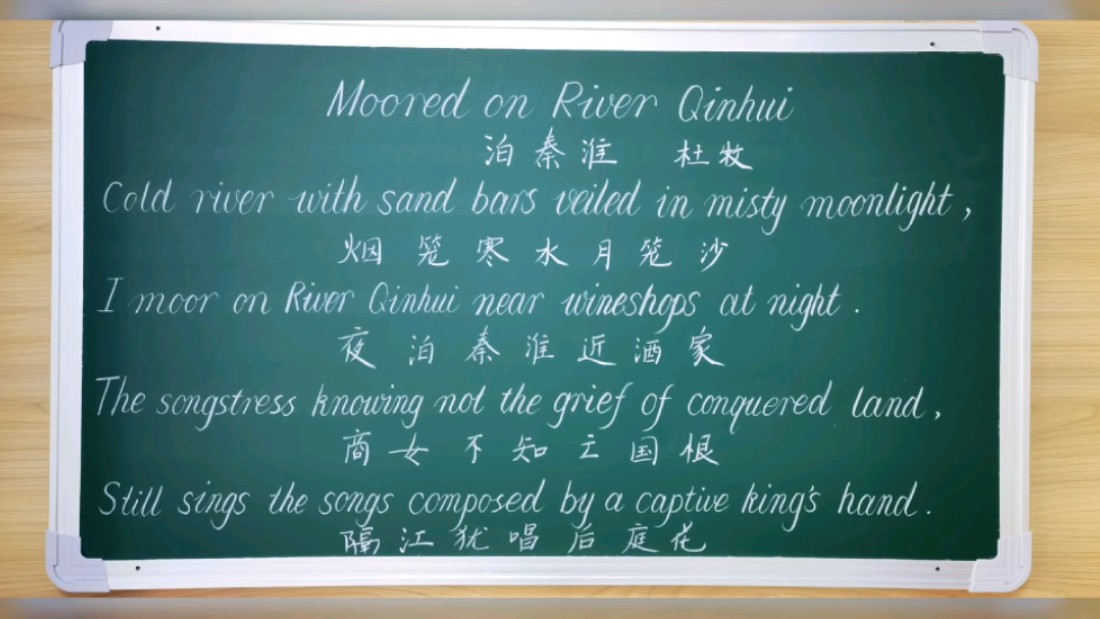 Moored on River Qinhui
泊秦淮 杜牧
Cold river with sand bars veiled in misty moonlight,
烟笼寒水月笼沙
I moor on River Qinhui near wineshops at night.
夜泊秦淮近酒家
The songstress knowing not the grief of conquered land,
商女不知亡国恨
Still sings the songs composed by a captive king's hand.
隔江犹唱后庭花